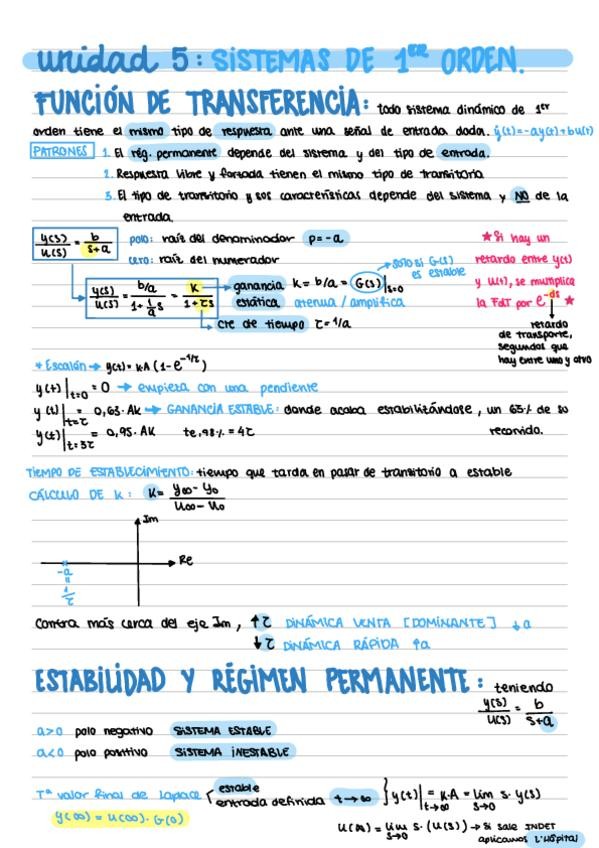 unidad 5: SISTEMAS DE 1er ORDEN.
FUNCIÓN DE TRANSFERENCIA: todo sistema dinámico de 1er
orden tiene el mismo tipo de respuesta ante una señal de entrada dada. ẏ(t)=-ay(t)+bu(t)
PATRONES 1. El rég. permanente depende del sistema y del tipo de entrada.
2. Respuesta libre y forzada tienen el mismo tipo de transitorio
3. El tipo de transitorio y sus características depende del sistema y NO de la
entrada.
y(s)/u(s) = b/s+a polo: raíz del denominador p=-a
cero: raíz del numerador
★ Si hay un
retardo entre y(t)
y u(t), se multiplica
la FdT por e^-ds ★
retardo
de transporte,
segundos que
hay entre uno y otro
y(s)/u(s) = b/a / 1+1/a s = K / 1+τs → ganancia K = b/a = G(s)|s=0 → SOLO si G(s)
es estable
estática atenúa / amplifica
cte de tiempo τ=1/a
* Escalón → y(t)= K·A (1-e^-t/τ)
y(t)|t=0 = 0 → empieza con una pendiente
y(t)|t=τ = 0,63·AK → GANANCIA ESTABLE: donde acaba estabilizándose, un 63% de su
recorrido.
y(t)|t=3τ = 0,95·AK te,98% = 4τ
TIEMPO DE ESTABLECIMIENTO: tiempo que tarda en pasar de transitorio a estable
CÁLCULO DE K: K= y∞-y0 / u∞-u0
Im
Re
-a
=
1/τ
Contra más cerca del eje Im, ↑τ DINÁMICA LENTA [DOMINANTE] ↓a
↓τ DINÁMICA RÁPIDA ↑a
ESTABILIDAD Y RÉGIMEN PERMANENTE: teniendo
y(s)/u(s) = b/s+a
a>0 polo negativo SISTEMA ESTABLE
a<0 polo positivo SISTEMA INESTABLE
Tª valor final de Laplace { estable
entrada definida t→∞ } y(t)|t→∞ = K·A = lim s→0 s·y(s)
y(∞) = u(∞)·G(0)
u(∞) = lim s→0 s·(u(s)) → Si sale INDET
aplicamos L'Hôpital